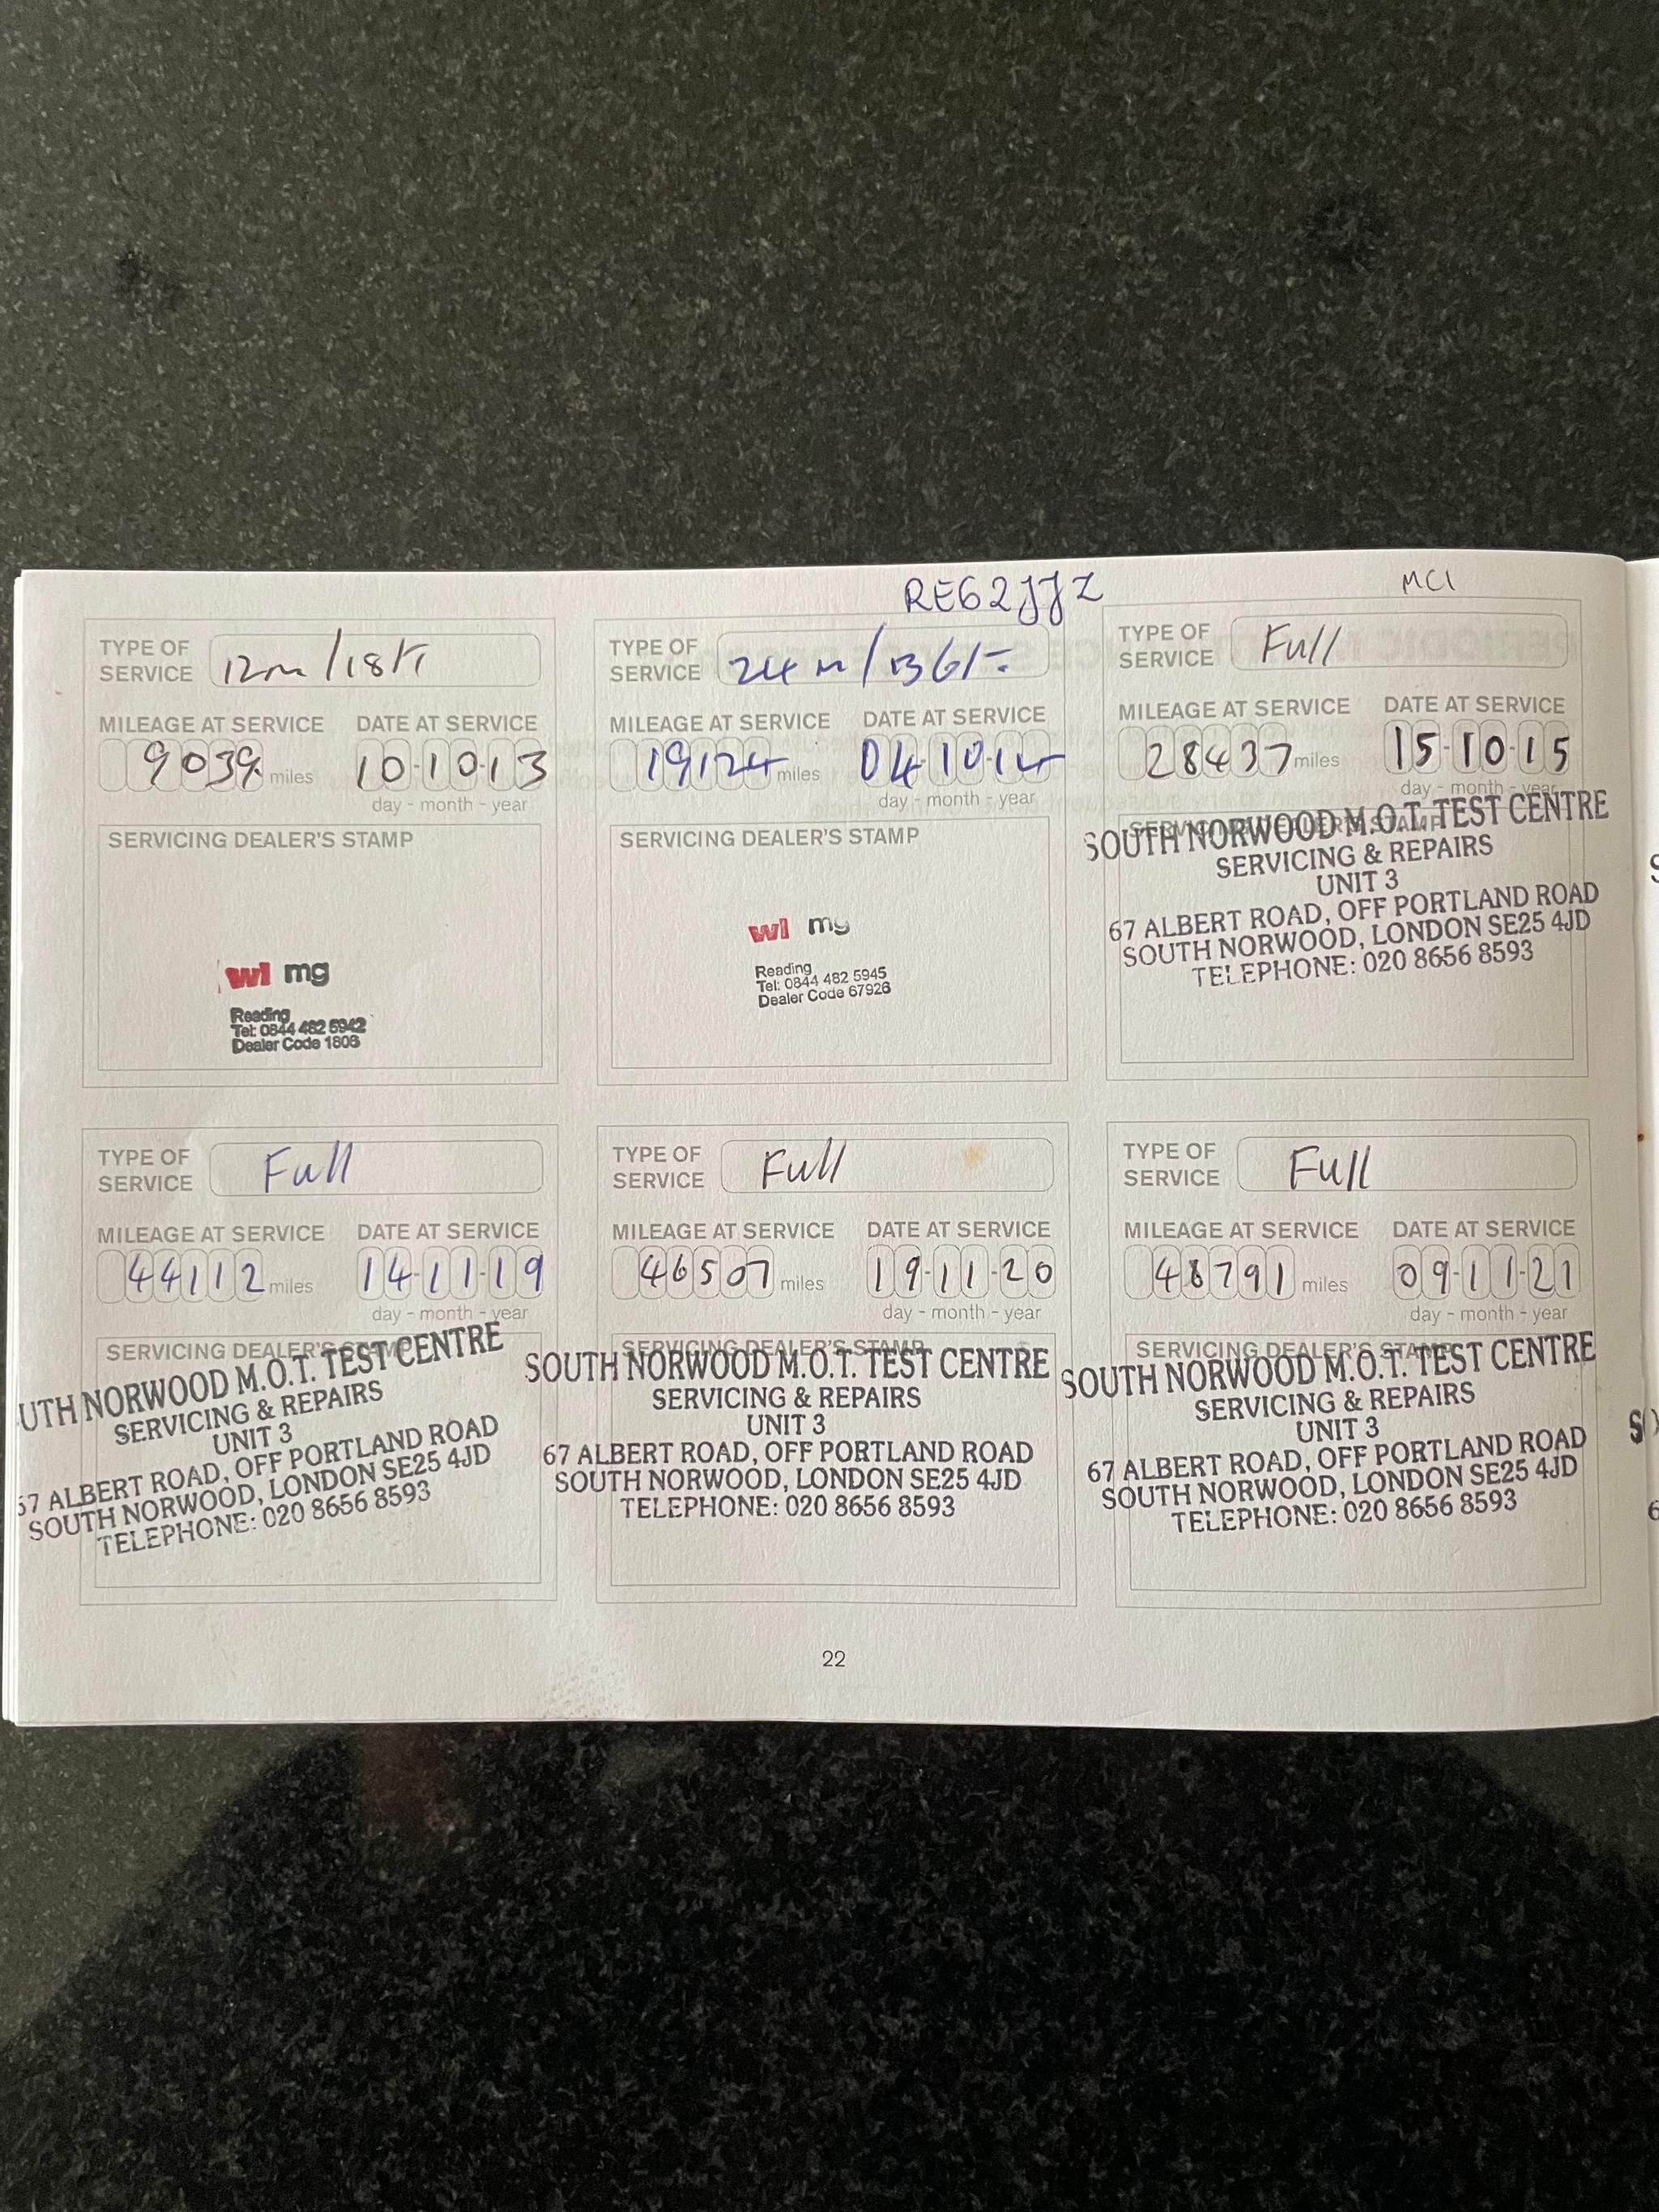 RE62JJZ
MC1
TYPE OF SERVICE 12m/18K
MILEAGE AT SERVICE DATE AT SERVICE
9039 miles 10-10-13
day - month - year
SERVICING DEALER'S STAMP
wl mg
Reading
Tel: 0844 482 5942
Dealer Code 1806
TYPE OF SERVICE 24m/
MILEAGE AT SERVICE DATE AT SERVICE
19124 miles 04-10-14
day - month - year
SERVICING DEALER'S STAMP
wl mg
Reading
Tel: 0844 482 5945
Dealer Code 67926
TYPE OF SERVICE Full
MILEAGE AT SERVICE DATE AT SERVICE
28437 miles 15-10-15
day - month - year
SERVICING DEALER'S STAMP
SOUTH NORWOOD M.O.T. TEST CENTRE
SERVICING & REPAIRS
UNIT 3
67 ALBERT ROAD, OFF PORTLAND ROAD
SOUTH NORWOOD, LONDON SE25 4JD
TELEPHONE: 020 8656 8593
TYPE OF SERVICE Full
MILEAGE AT SERVICE DATE AT SERVICE
44112 miles 14-11-19
day - month - year
SERVICING DEALER'S STAMP
UTH NORWOOD M.O.T. TEST CENTRE
SERVICING & REPAIRS
UNIT 3
67 ALBERT ROAD, OFF PORTLAND ROAD
SOUTH NORWOOD, LONDON SE25 4JD
TELEPHONE: 020 8656 8593
TYPE OF SERVICE Full
MILEAGE AT SERVICE DATE AT SERVICE
46507 miles 19-11-20
day - month - year
SERVICING DEALER'S STAMP
SOUTH NORWOOD M.O.T. TEST CENTRE
SERVICING & REPAIRS
UNIT 3
67 ALBERT ROAD, OFF PORTLAND ROAD
SOUTH NORWOOD, LONDON SE25 4JD
TELEPHONE: 020 8656 8593
TYPE OF SERVICE Full
MILEAGE AT SERVICE DATE AT SERVICE
48791 miles 09-11-21
day - month - year
SERVICING DEALER'S STAMP
SOUTH NORWOOD M.O.T. TEST CENTRE
SERVICING & REPAIRS
UNIT 3
67 ALBERT ROAD, OFF PORTLAND ROAD
SOUTH NORWOOD, LONDON SE25 4JD
TELEPHONE: 020 8656 8593
22